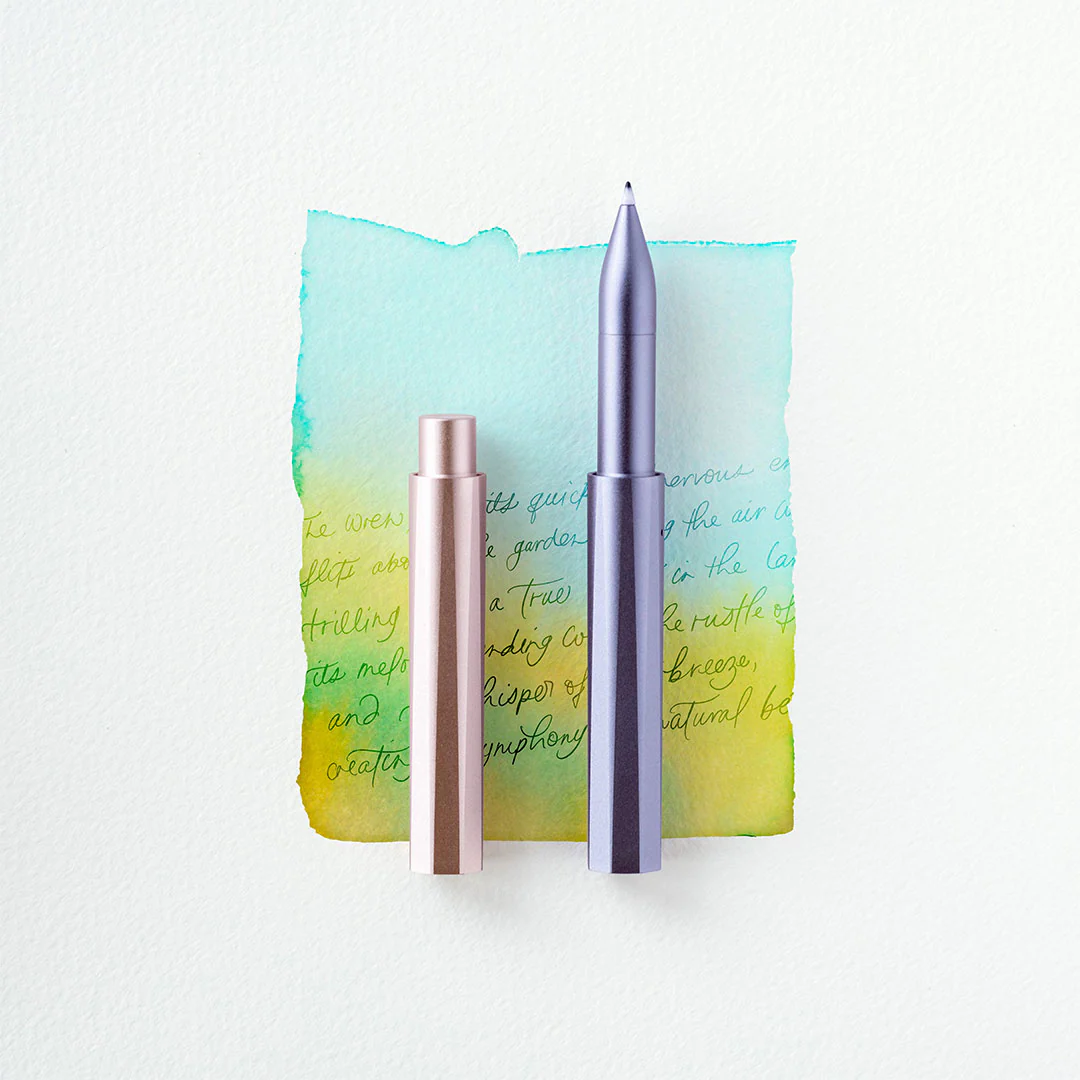 The wren, its quick nervous
flits the garden the air
trilling a True in the
its melo nding co he rustle of
and hisper of breeze,
creating symphony natural be